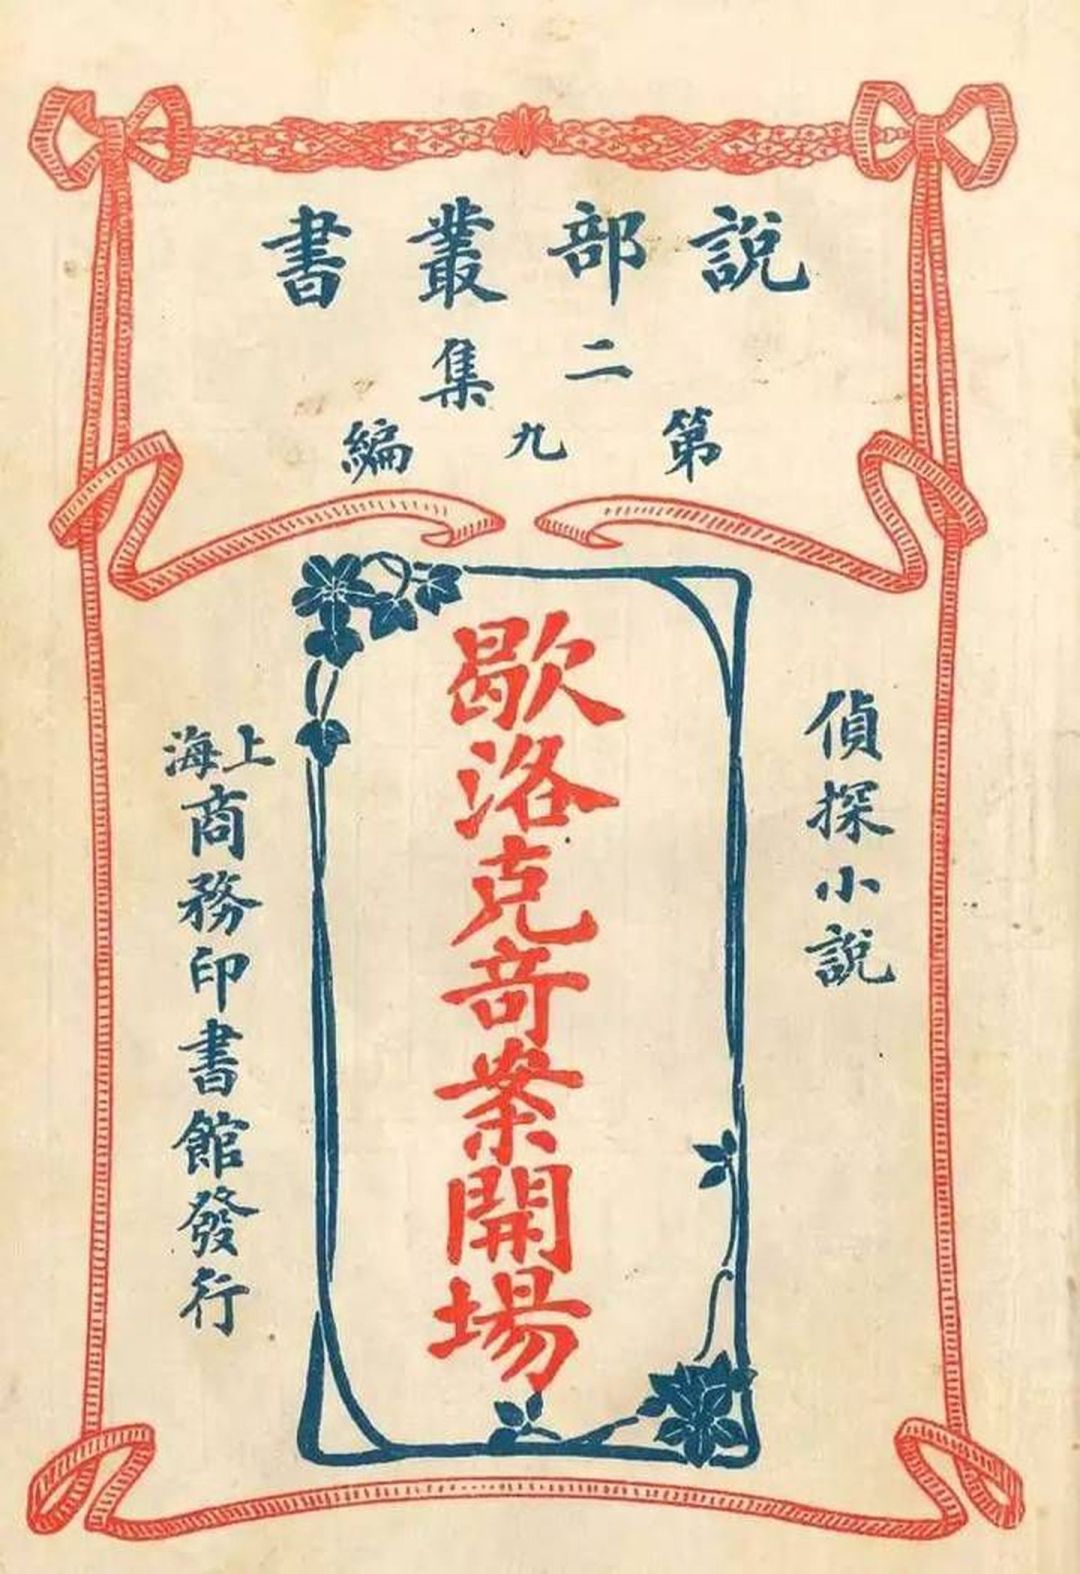 說部叢書
二集
第九編
偵探小說
歇洛克奇案開場
上海
商務印書館發行